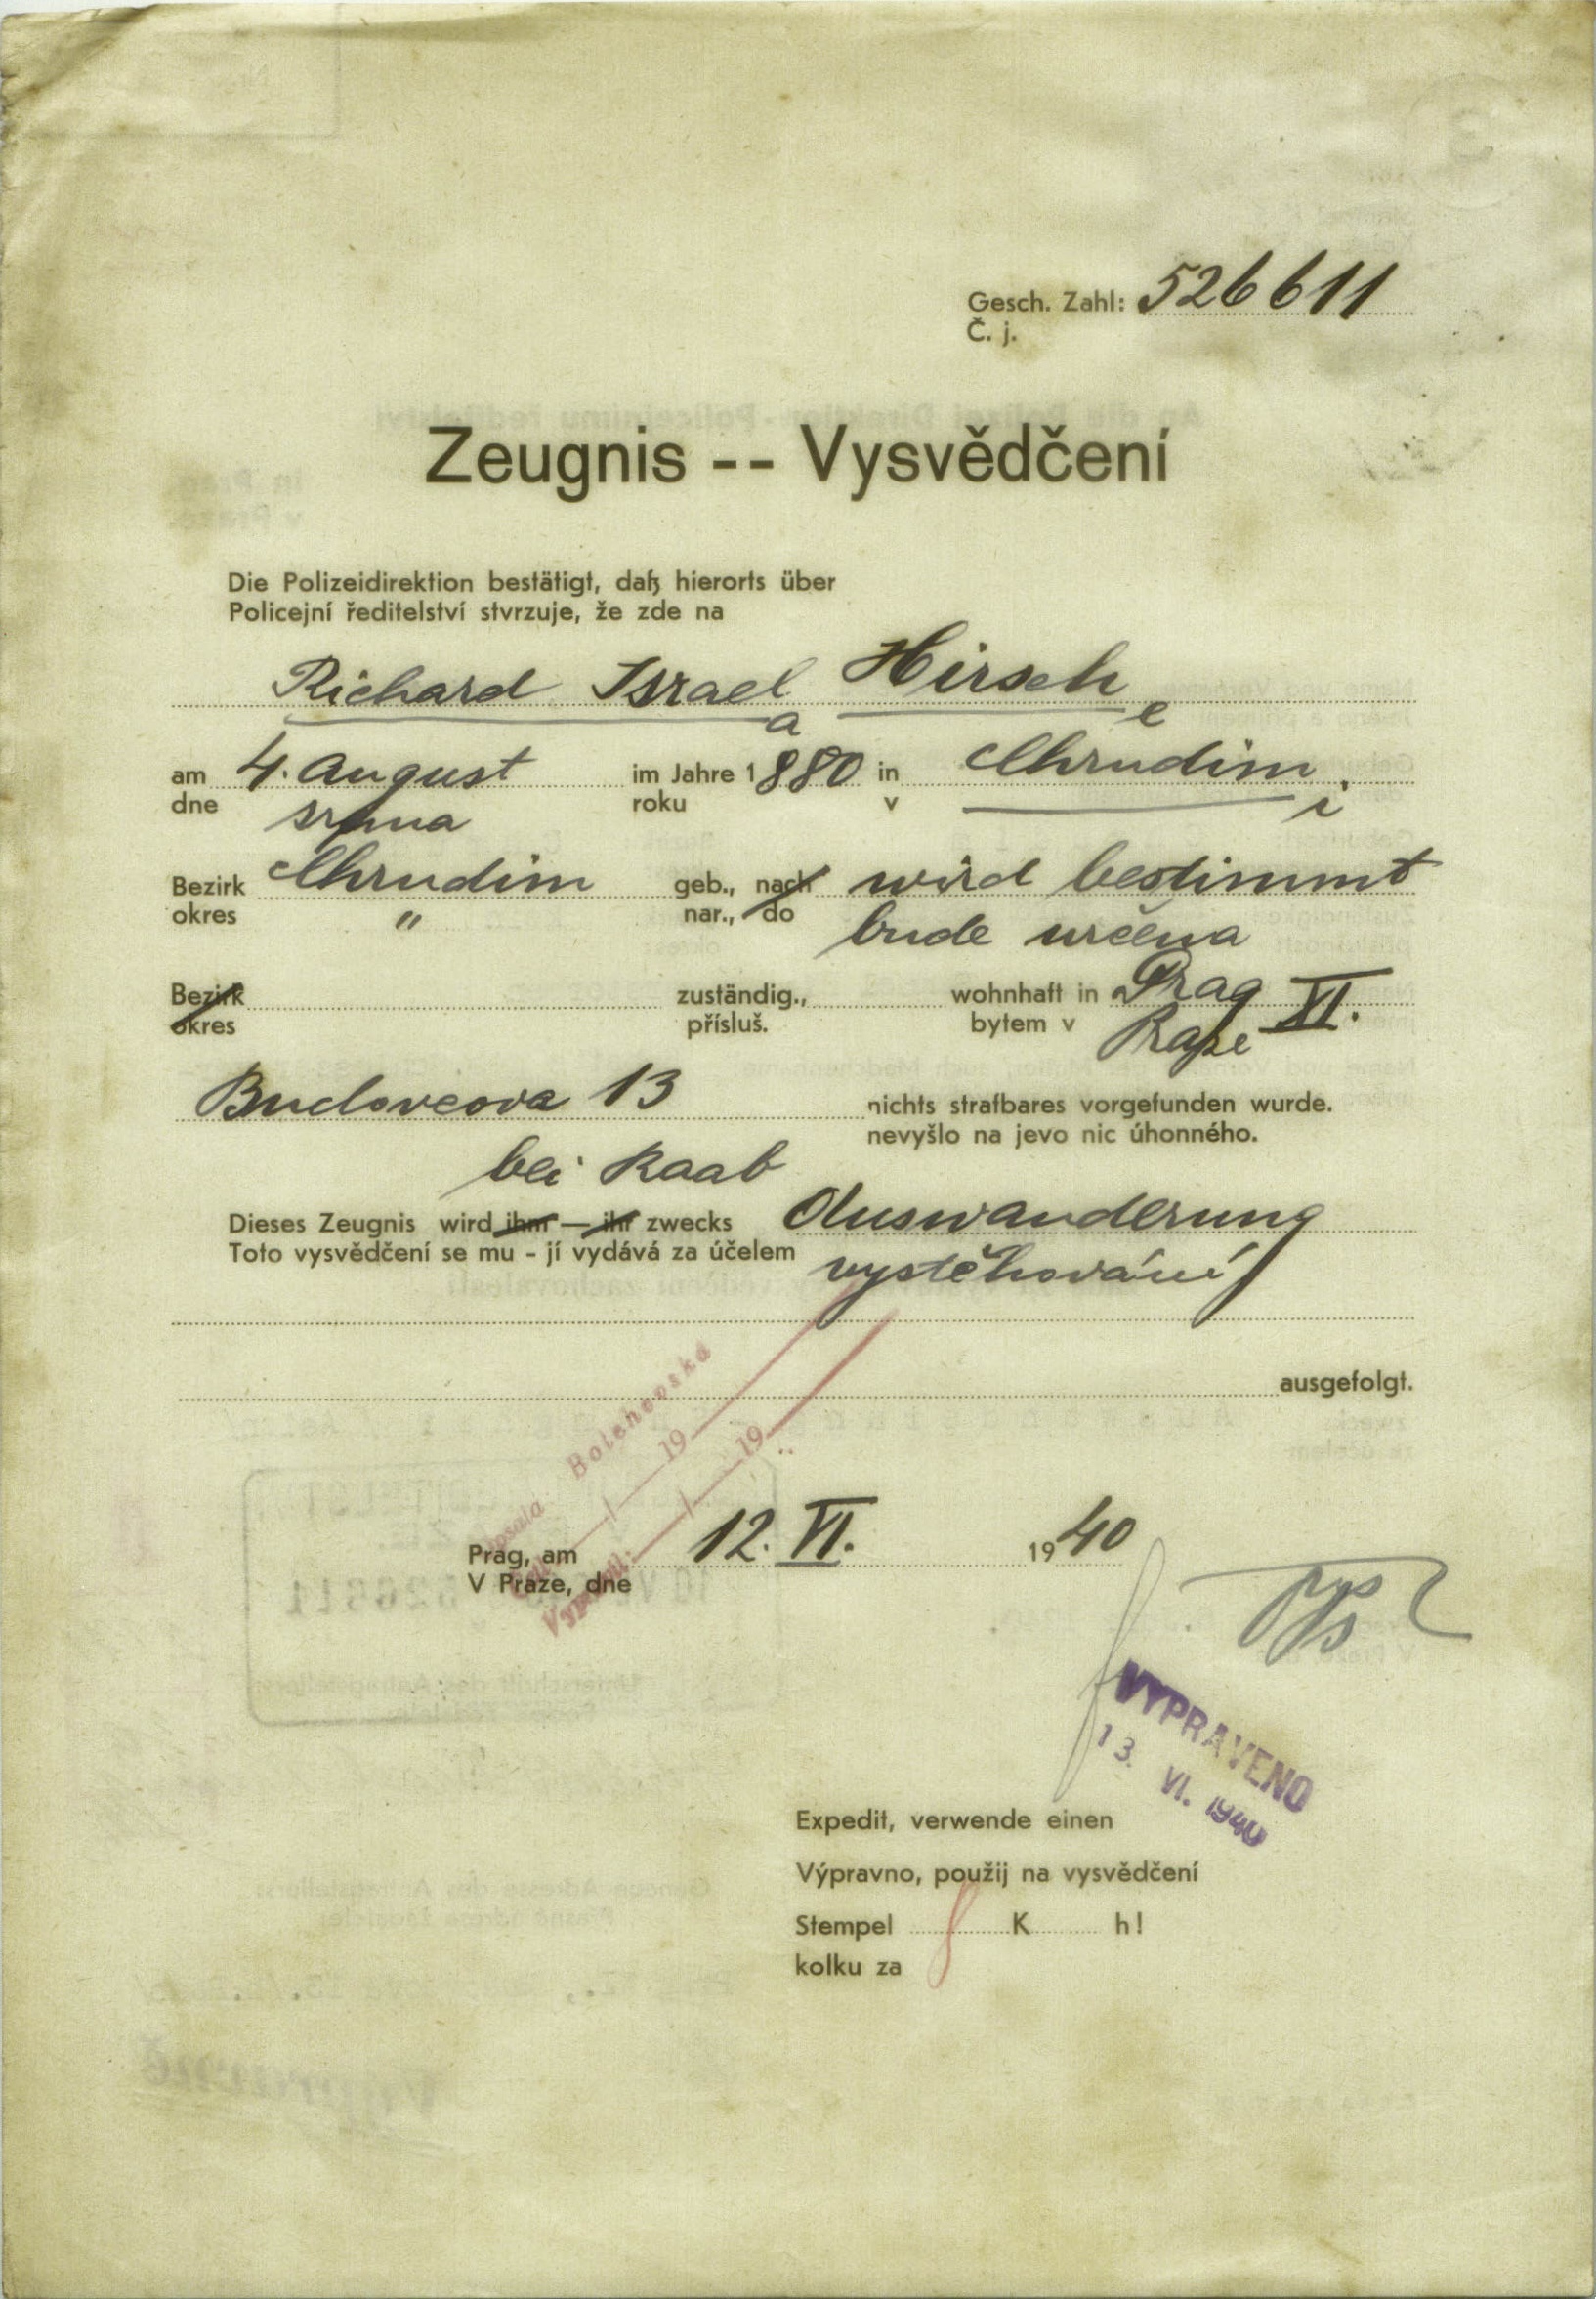 Gesch. Zahl: 526611
Č. j.
Zeugnis -- Vysvědčení
Die Polizeidirektion bestätigt, daß hierorts über
Policejní ředitelství stvrzuje, že zde na
Richard Israel Hirsch
a e
am 4. August im Jahre 1880 in Chrudim,
dne srpna roku v i
Bezirk Chrudim geb., nach wird bestimmt
okres " nar., do bude určena
Bezirk zuständig., wohnhaft in Prag XI.
okres přísluš. bytem v Praze
Budovcova 13 nichts strafbares vorgefunden wurde.
nevyšlo na jevo nic úhonného.
bei Raab
Dieses Zeugnis wird ihm — ihr zwecks Auswanderung
Toto vysvědčení se mu - jí vydává za účelem vystěhování
ausgefolgt.
Bolehovská
19
19
Prag, am 12. VI. 1940
V Praze, dne
VYPRAVENO
13. VI. 1940
Expedit, verwende einen
Výpravno, použij na vysvědčení
Stempel K h!
kolku za